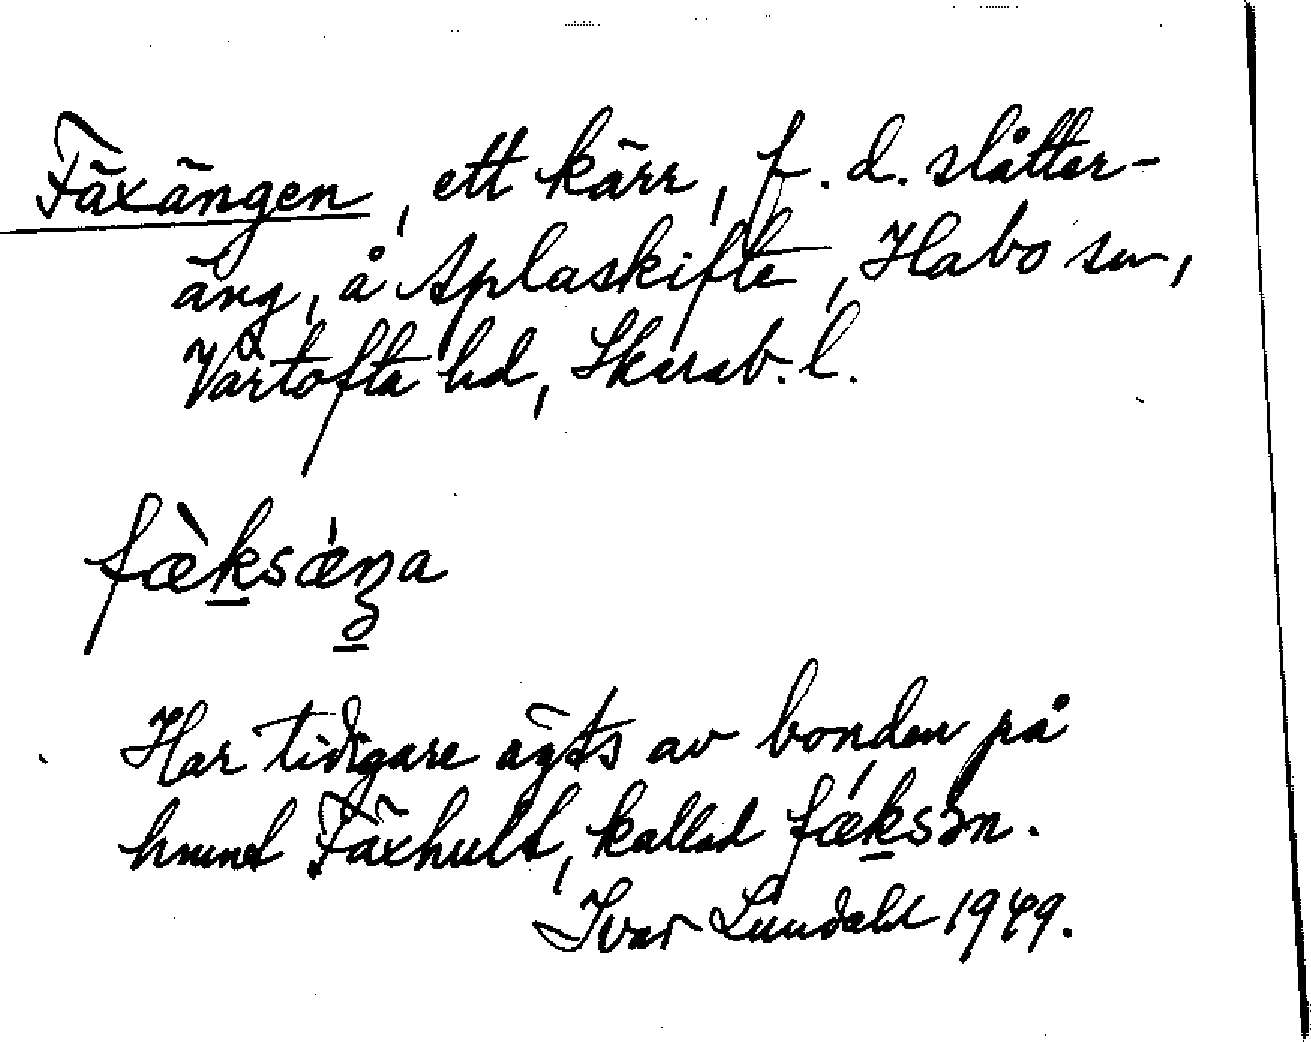 Fäxängen, ett kärr, f. d. slåtter-
äng, å Aplaskifte, Habo sn,
Vartofta hd, Skarab. l.
fæ̀ksǽŋa
Har tidigare ägts av bonden på
hmnet Fäxhult, kallad fǽksən.
Ivar Lundahl 1949.